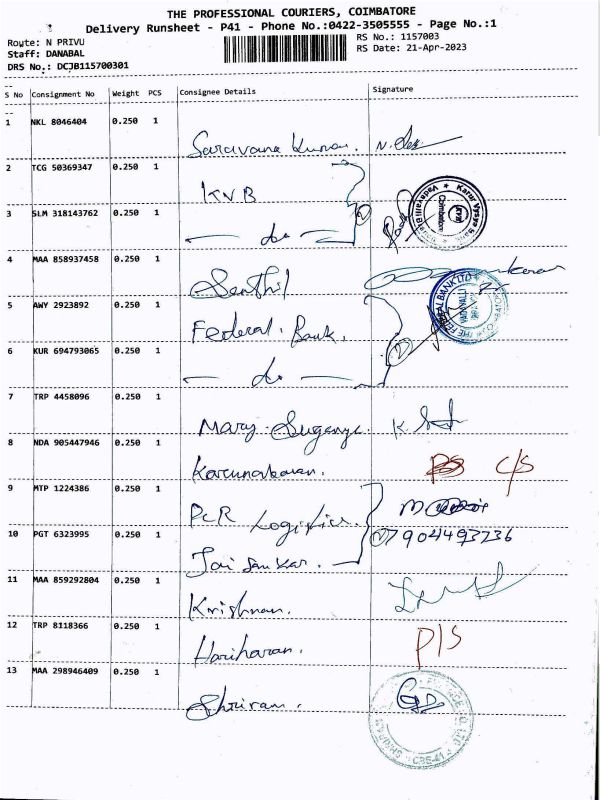 THE PROFESSIONAL COURIERS, COIMBATORE
Delivery Runsheet - P41 - Phone No.:0422-3505555 - Page No.:1
Route: N PRIVU
RS No.: 1157003
Staff: DANABAL
RS Date: 21-Apr-2023
DRS No.: DCJB115700301
S No Consignment No Weight PCS Consignee Details Signature
1 NKL 8046404 0.250 1
Saravana Kumar.
2 TCG 50369347 0.250 1
KVB
3 SLM 318143762 0.250 1
— do —
4 MAA 858937458 0.250 1
Senthil
5 AWY 2923892 0.250 1
Federal. Bank.
6 KUR 694793065 0.250 1
— do —
7 TRP 4458096 0.250 1
Mary Suganya
8 NDA 905447946 0.250 1
Karunakaran. C/S
9 MTP 1224386 0.250 1
PCR Logistics
10 PGT 6323995 0.250 1
Jai Sankar.
11 MAA 859292804 0.250 1
Krishnan.
12 TRP 8118366 0.250 1
Hariharan. P/S
13 MAA 298946409 0.250 1
Shriram.